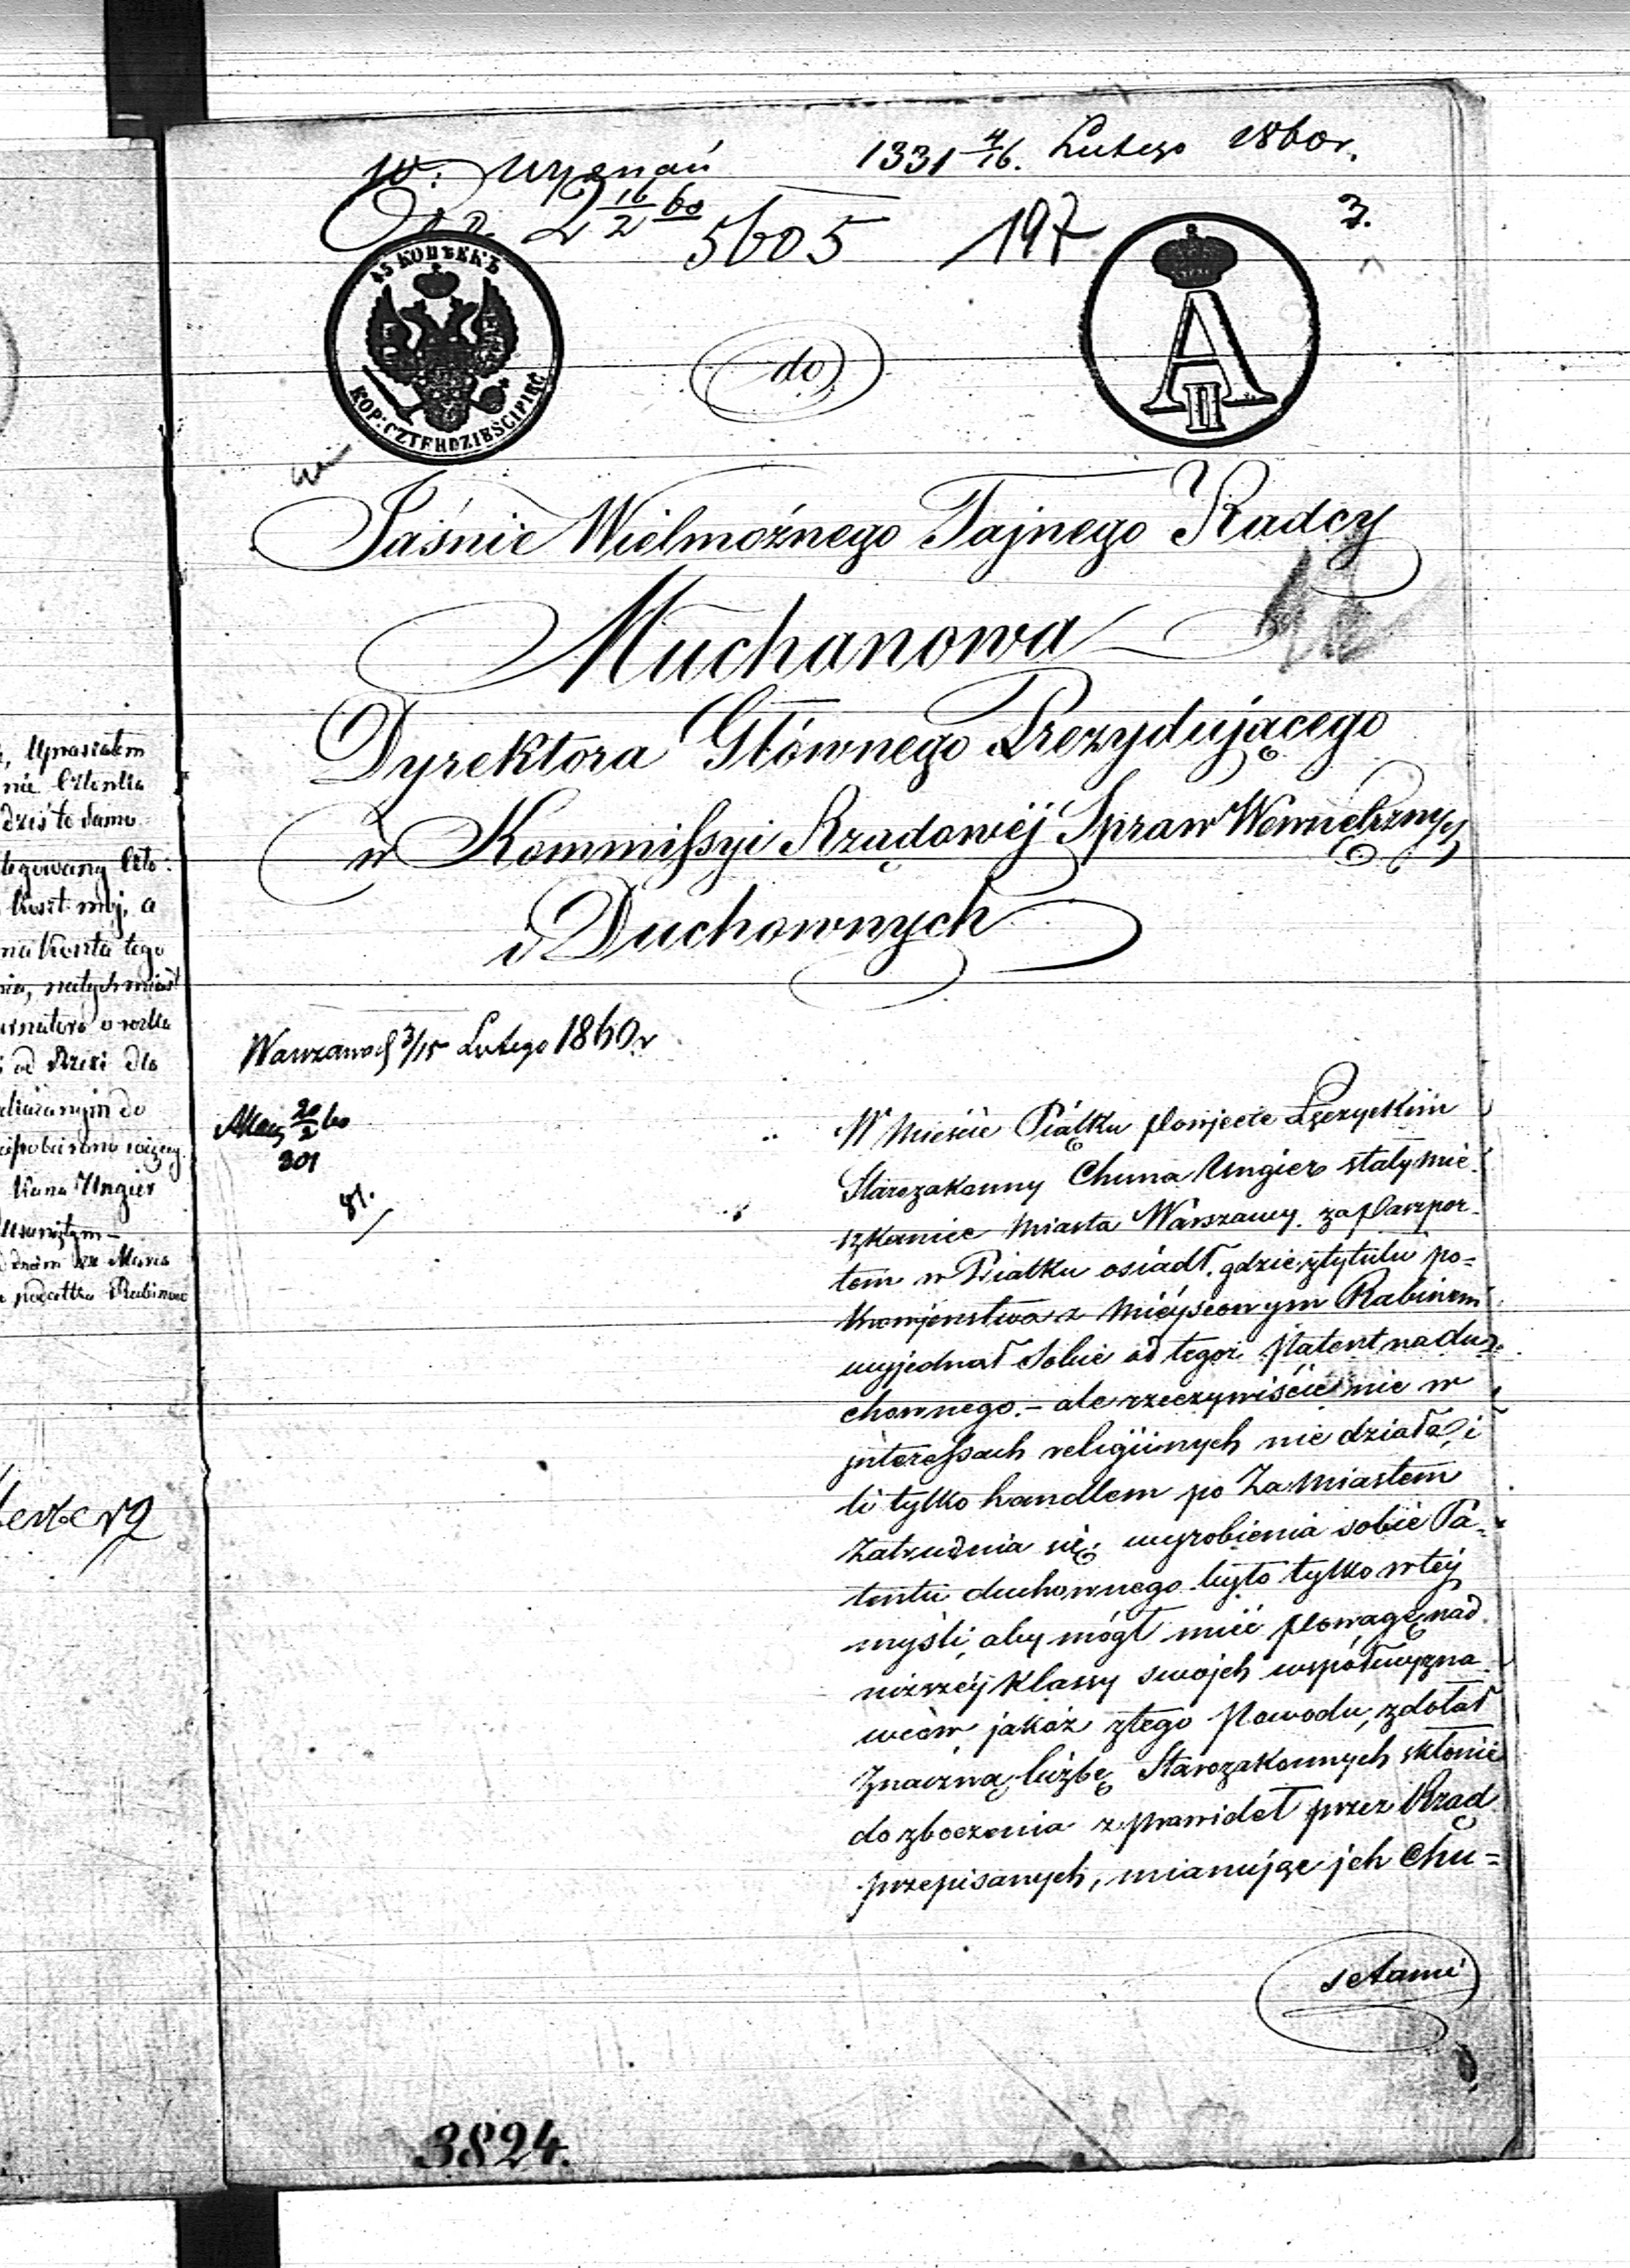 W. Wyznań 1331 4/16. Lutego 1860 r.
16/2 60 5605 197 3.
45 КОПѢЕКЪ
KOP: CZTERDZIEŚCI PIĘĆ
A II
do
Jaśnie Wielmożnego Tajnego Radcy
Muchanowa
Dyrektora Głównego Prezydującego
w Kommissyi Rządowéj Spraw Wewnętrznych
i Duchownych
Warszawa d 3/15 Lutego 1860 r
20/2 60
301
W Mieście Piątku Powjecie Łęczyckim
Starozakonny Chuna Ungier stały mie-
szkaniec Miasta Warszawy za Paszpor-
tem w Piątku osiadł, gdzie z tytułu po-
krewjenstwa z Miéyscowym Rabinem
wyjednał Sobie od tegoż Patent na du-
chownego. – ale rzeczywiście nie w
jnteressach religiinych nie działa, i
li tylko handlem po Za Miastem
Zatrudnia się. wyrobienia sobie Pa-
tentu duchownego było tylko w téj
myśli, aby mógł mieć Powagę nad
niższéj Klassy swojch współwyzna-
wców, jakoż z tego Powodu, zdołał
Znaczną liczbę Starozakonnych skłonić
do zboczenia z prawideł przez Rząd
przepisanych, mianując jch Chu=
setami
3824.
, Uprasiałem
nie Członka
dziś te same
legowany Czło:
koszt mój, a
na koszta tego
nia, natychmiast
od Dzieci dla
Ungier
Usuniętym –
podatku Rabinow